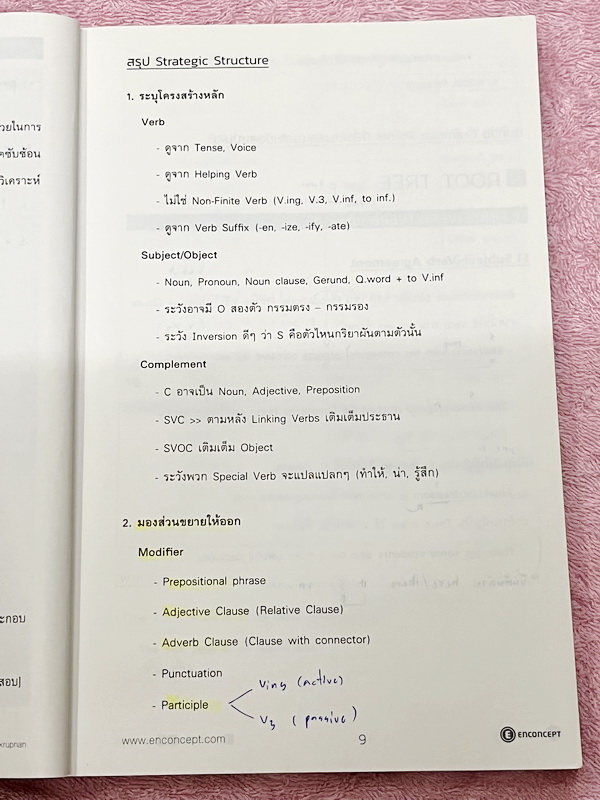 สรุป Strategic Structure
1. ระบุโครงสร้างหลัก
Verb
- ดูจาก Tense, Voice
- ดูจาก Helping Verb
- ไม่ใช่ Non-Finite Verb (V.ing, V.3, V.inf, to inf.)
- ดูจาก Verb Suffix (-en, -ize, -ify, -ate)
Subject/Object
- Noun, Pronoun, Noun clause, Gerund, Q.word + to V.inf
- ระวังอาจมี O สองตัว กรรมตรง – กรรมรอง
- ระวัง Inversion ดีๆ ว่า S คือตัวไหนกริยาผันตามตัวนั้น
Complement
- C อาจเป็น Noun, Adjective, Preposition
- SVC >> ตามหลัง Linking Verbs เติมเต็มประธาน
- SVOC เติมเต็ม Object
- ระวังพวก Special Verb จะแปลแปลกๆ (ทำให้, น่า, รู้สึก)
2. มองส่วนขยายให้ออก
Modifier
- Prepositional phrase
- Adjective Clause (Relative Clause)
- Adverb Clause (Clause with connector)
- Punctuation
- Participle
Ving (active)
V3 (passive)
www.enconcept.com
9
E ENCONCEPT
วยในการ
คซับซ้อน
วิเคราะห์
ะกอบ
สอบ)
krupnan